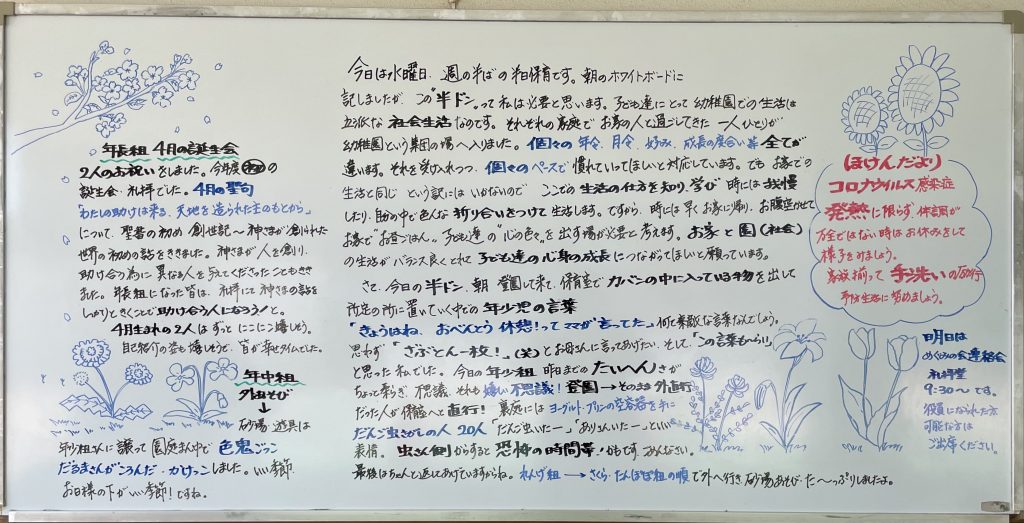 年長組 4月の誕生会
2人のお祝いをしました。今年度初の
誕生会・礼拝でした。4月の聖句
「わたしの助けは来る、天地を造られた主のもとから」
について、聖書の初め 創世記〜神さまが創られた
世界の初めの話をききました。神さまが人を創り、
助け合う為に異なる人を与えてくださったこともきき
ました。年長組になった皆は、礼拝にて神さまの話を
しっかりときくことで助け合う人になろう!と。
4月生まれの2人はずっとにこにこ嬉しそう。
自己紹介の姿も嬉しそうで、皆が幸せタイムでした。
年中組
外あそび
↓
砂場、遊具は
年少組さんに譲って園庭まん中で色鬼ごっこ
だるまさんがころんだ・かけっこしました。いい季節
お日様の下がいい季節!ですね。
今日は水曜日、週の半ばの半日保育です。朝のホワイトボードに
記しましたが、この"半ドン"って私は必要と思います。子ども達にとって幼稚園での生活は
立派な社会生活なのです。それぞれの家庭でお家の人と過ごしてきた一人ひとりが
幼稚園という集団の場へ入りました。個々の年令、月令、好み、成長の度合い等 全てが
違います。それを受け入れつつ、個々のペースで慣れていってほしいと対応しています。でも お家での
生活と同じ という訳にはいかないので ここでの生活の仕方を知り、学び 時には我慢
したり、自分の中で色んな折り合いをつけて生活します。ですから、時には早くお家に帰り、お腹空かせて
お家で"お昼ごはん"。子ども達の"心の色々"を出す場が必要と考えます。お家と園(社会)
の生活がバランス良くとれて 子ども達の心身の成長につながってほしいと願っています。
さて、今日の半ドン、朝 登園して来て、保育室でカバンの中に入っている手物を出して
所定の所に置いていく中での年少児の言葉
「きょうはね、おべんとう 休憩!ってママが言ってた」何と素敵な言葉なんでしょう。
思わず「ざぶとん一枚!」(笑)とお母さんに言ってあげたい、そして、"この言葉も〜らい"
と思った私でした。今日の年少組 昨日までのたいへんさが
ちょっと和らぎ、不思議、それも嬉しい不思議! 登園→そのまま外直行
だった人が保育室へと直行! 裏庭にはヨーグルト・プリンの空容器を手に
だんご虫さがしの人20人「だんご虫いたー」「ありさんいたー」といい
表情。虫さん側からすると恐怖の時間帯!かもです。ごめんなさい。
最後はちゃんと返してあげていますからね。れんげ組→さくら・たんぽぽ組の順で外へ行き砂場あそび、た〜っぷりしましたよ。
ほけんだより
コロナウイルス感染症
発熱に限らず、体調が
万全ではない時はお休みをして
様子をみましょう。
家族揃って手洗いの励行
予防生活に努めましょう。
明日は
めぐみの会連絡会
礼拝堂
9:30〜です。
役員になられた方
可能な方は
ご出席ください。